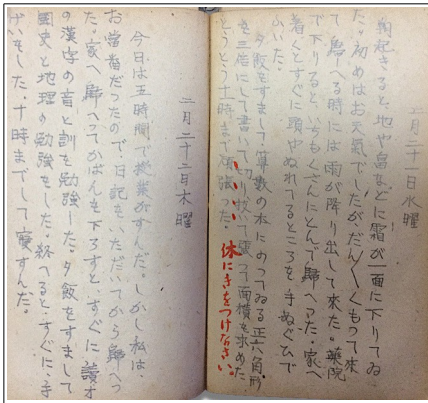 二月二十一日水曜
朝起きると、地や畠などに霜が一面に下りてゐ
た。初めはお天気でしたが、だんだんくもって来
て、歸へる時には雨が降り出して来た。薬院
で下りると、いちもくさんにとんで歸へった。家へ
着くとすぐに頭やぬれてるところを手ぬぐひで
ふいた。
夕飯をすまして、算数の本にのってゐる正六角形
を三倍にして書いて切り抜いて面積を求めた。
とうとう十時まで頑張った。
しいいい
体に気をつけなさい。
二月二十二日木曜
今日は五時間で授業がすんだ。しかし私は、
お当番だったので、日記をいただいてから歸へっ
た。家へ歸へってかばんを下ろすと、すぐに讀方
の漢字の音と訓を勉強した。夕飯をすまして
國史と地理の勉強をした。終へるとすぐに、手
げいをした。十時までして寝すんだ。